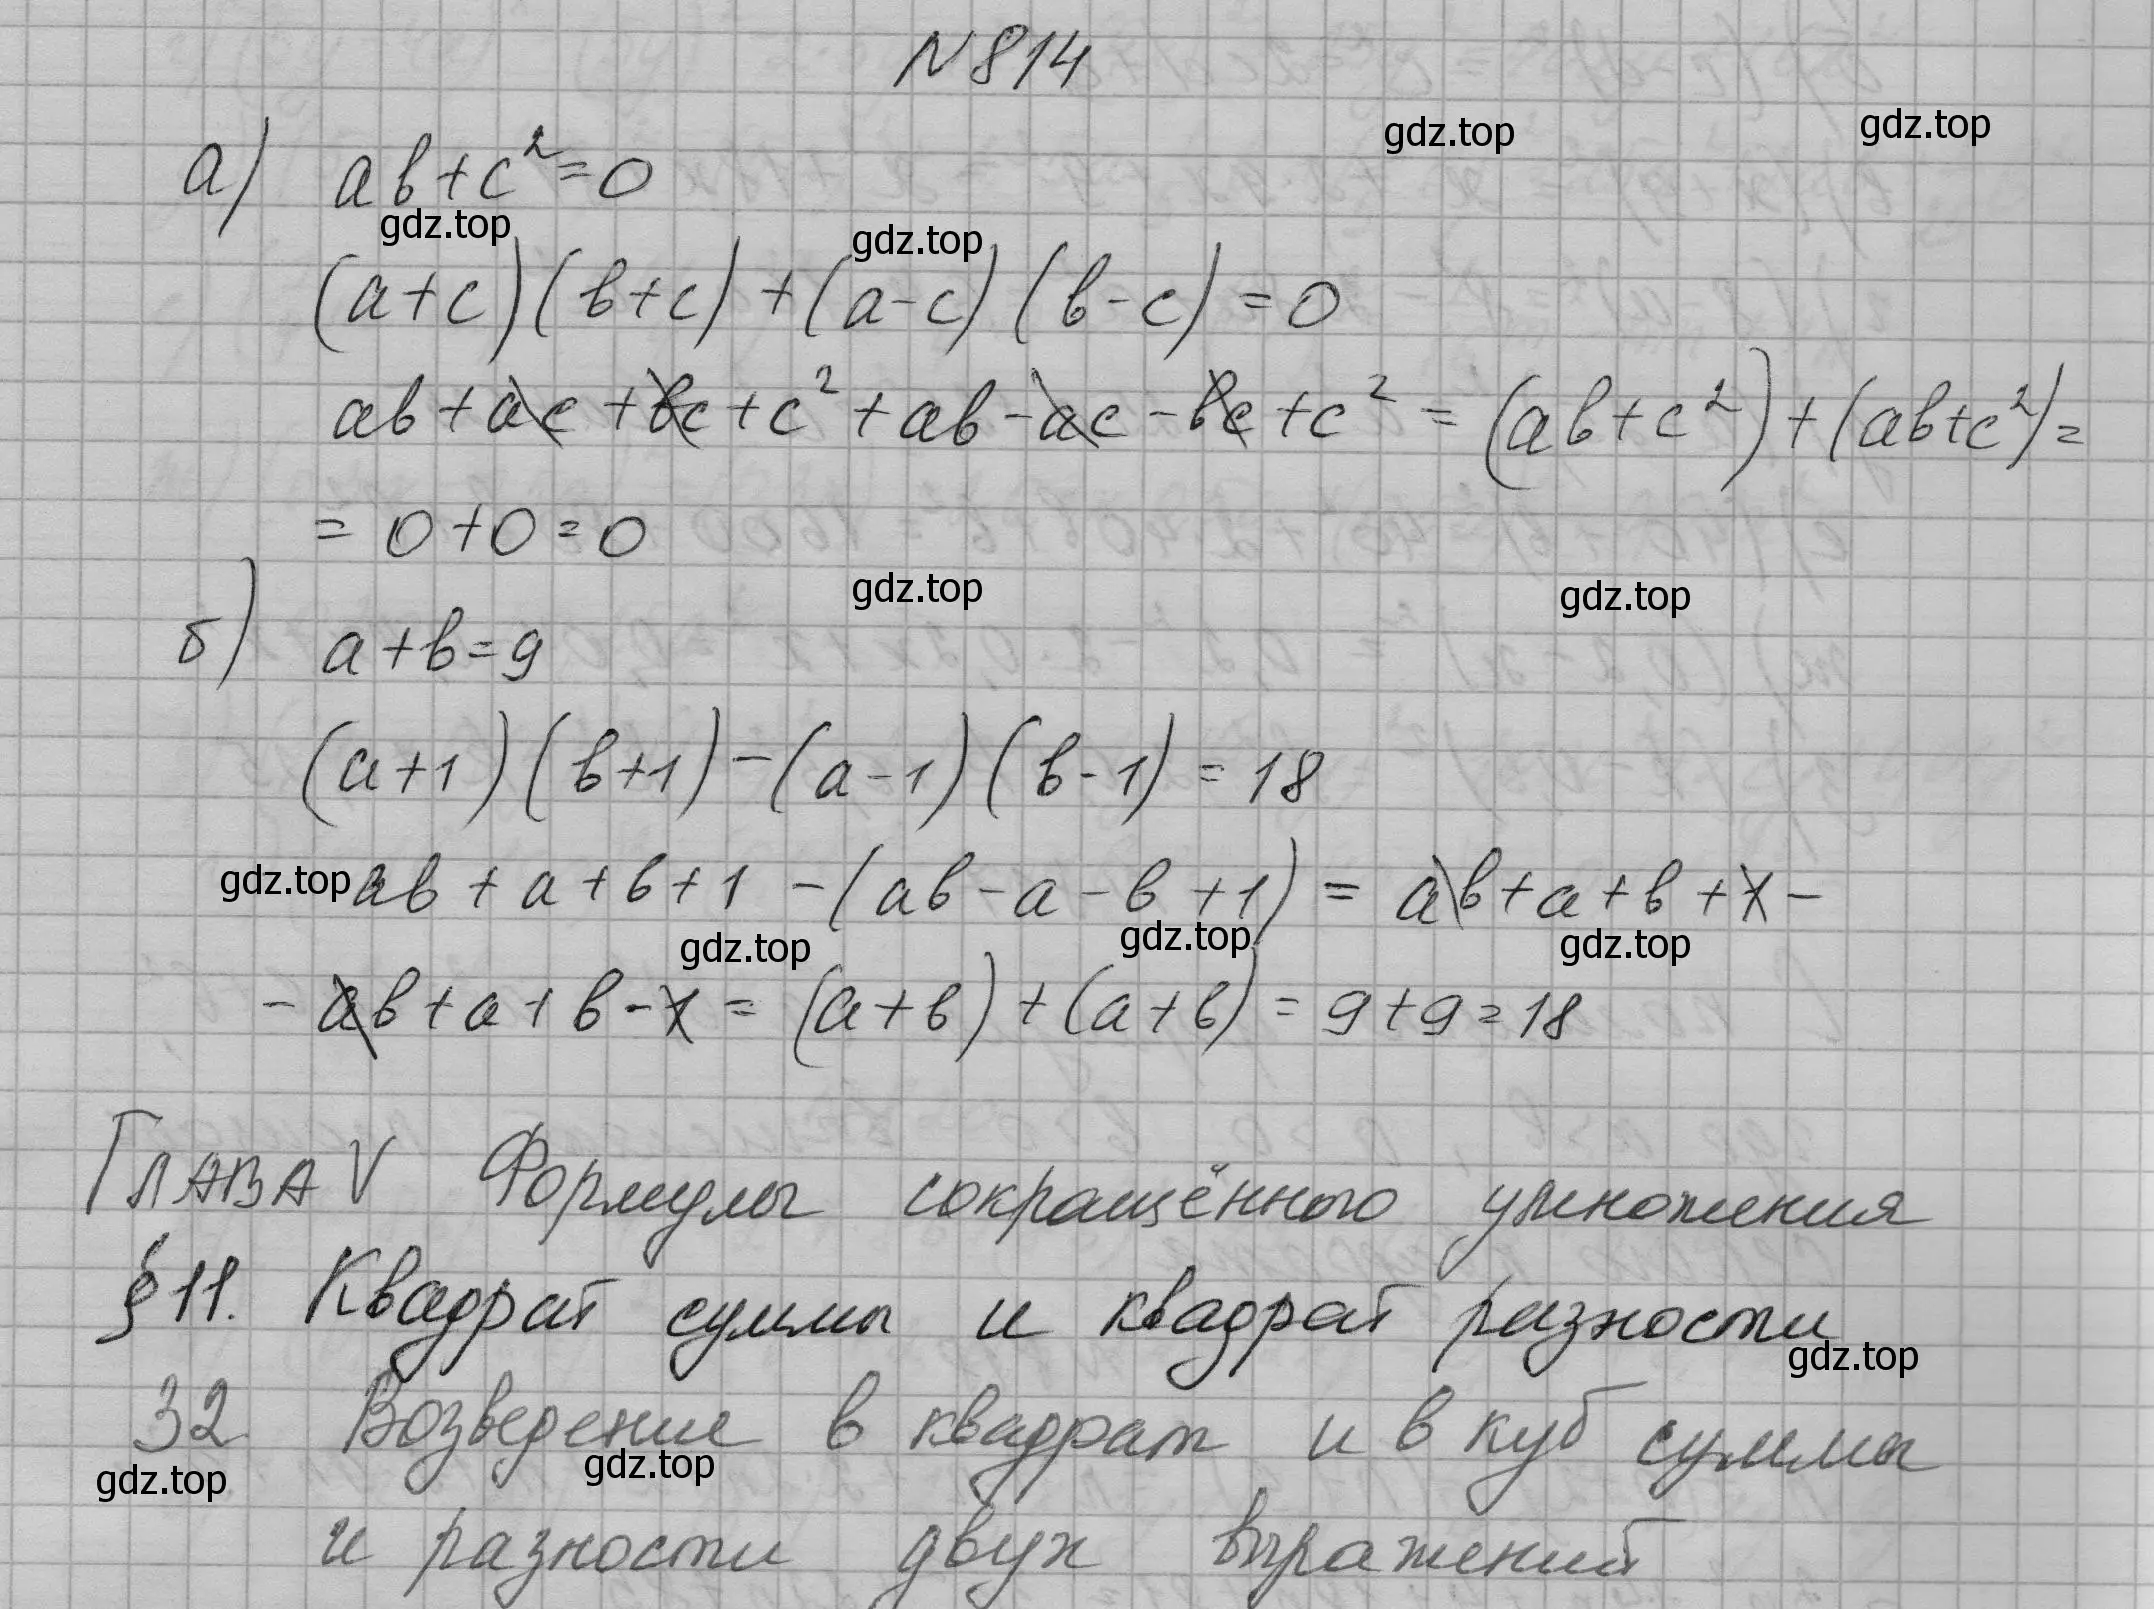 N 814
а) ab+c²=0
gdz.top gdz.top gdz.top gdz.top
(a+c)(b+c)+(a-c)(b-c)=0
ab+ac+bc+c²+ab-ac-bc+c²=(ab+c²)+(ab+c²)=
=0+0=0
gdz.top gdz.top
б) a+b=9
(a+1)(b+1)-(a-1)(b-1)=18
gdz.top ab+a+b+1-(ab-a-b+1)=ab+a+b+1-
gdz.top gdz.top gdz.top
-ab+a+b-1=(a+b)+(a+b)=9+9=18
ГЛАВА V Формулы сокращённого умножения
§11. Квадрат суммы и квадрат разности
gdz.top
32 Возведение в квадрат и в куб суммы
gdz.top gdz.top
и разности двух выражений